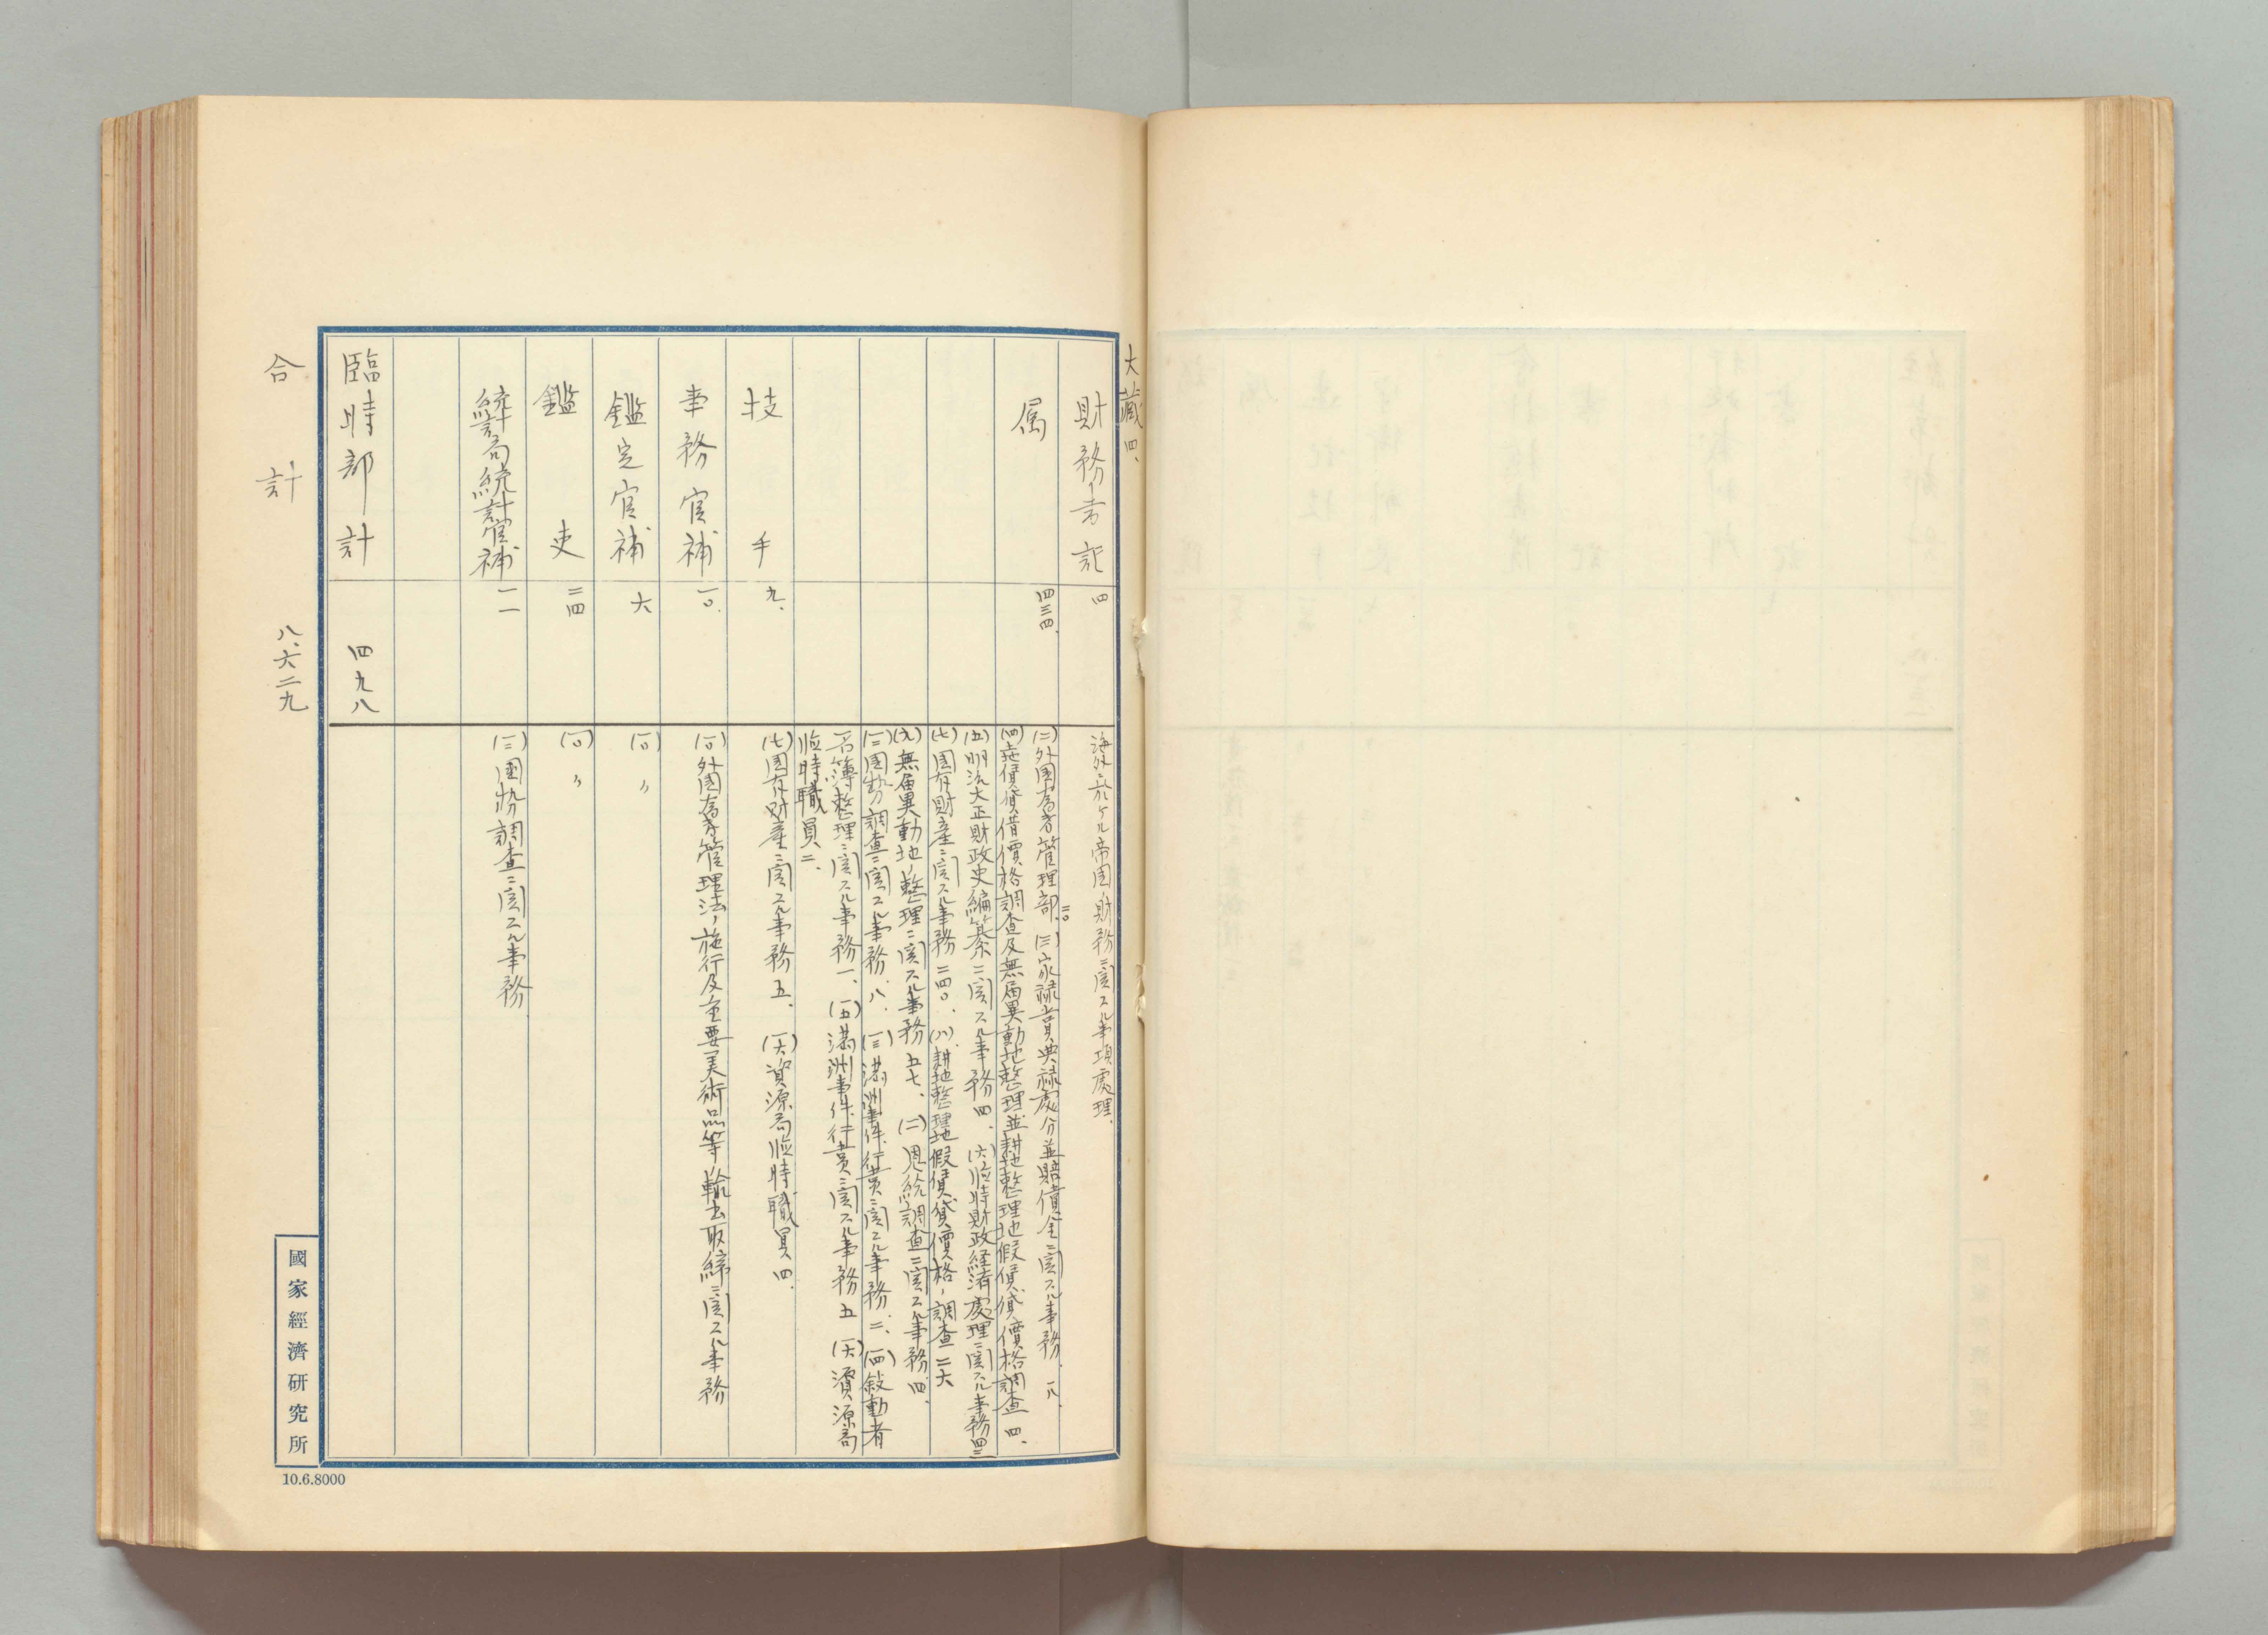 大藏 四、
財務書記 四 海外ニ於ケル帝国ノ財務ニ関スル事項處理、
属 四三四、
(二)外国為替管理部、三〇 (三)家禄賞典禄處分並賠償金ニ関スル事務、一八、
(四)賃貸價格調査及無届異動地整理並耕地整理地假賃貸價格調査 四、
(五)明治大正財政史編纂ニ関スル事務 四、(六)臨時財政経済處理ニ関スル事務 四三
(七)国有財産ニ関スル事務 二四〇、(八)耕地整理地假賃貸價格ノ調査 二六
(九)無届異動地ノ整理ニ関スル事務 五七、(一一)恩給調査ニ関スル事務 四、
(一二)国勢調査ニ関スル事務 八、(一三)満洲事件行賞ニ関スル事務 二、(一四)叙勲者
名簿整理ニ関スル事務 一、(一五)満洲事件行賞ニ関スル事務 五 (一六)資源局
臨時職員 二、
技手 九、 (七)国有財産ニ関スル事務 五、(一六)資源局臨時職員 四、
事務官補 一〇、 (一〇)外国為替管理法ノ施行及重要美術品等輸出取締ニ関スル事務
鑑定官補 六 (一〇) 〃
鑑吏 二四 (一〇) 〃
統計局統計官補 一一 (一二)国勢調査ニ関スル事務
臨時部計 四九八
合計 八、六二九
國家經濟研究所
10.6.8000